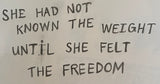 SHE HAD NOT
KNOWN THE WEIGHT
UNTIL SHE FELT
THE FREEDOM